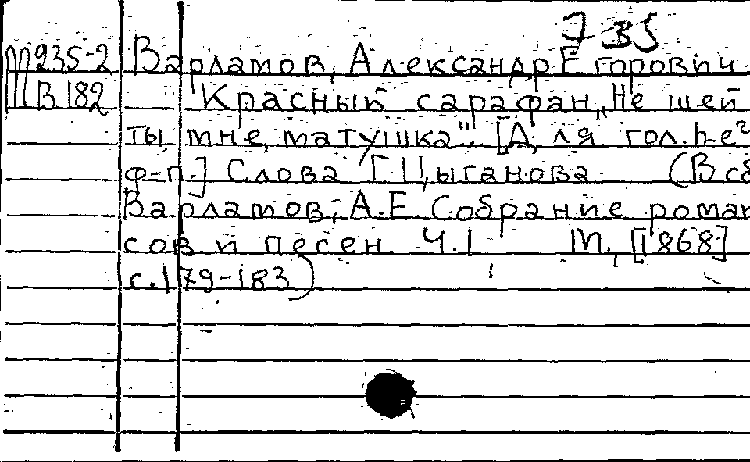 735
М935-2 Варламов, Александр Егорович
В182 "Красный сарафан, Не шей
ты мне, матушка". [Для гол. в-ег
ф-п.] Слова Г. Цыганова (В сб
Варламов, А.Е Собрание роман
сов и песен Ч.1 М, [1868]
с.179-183)